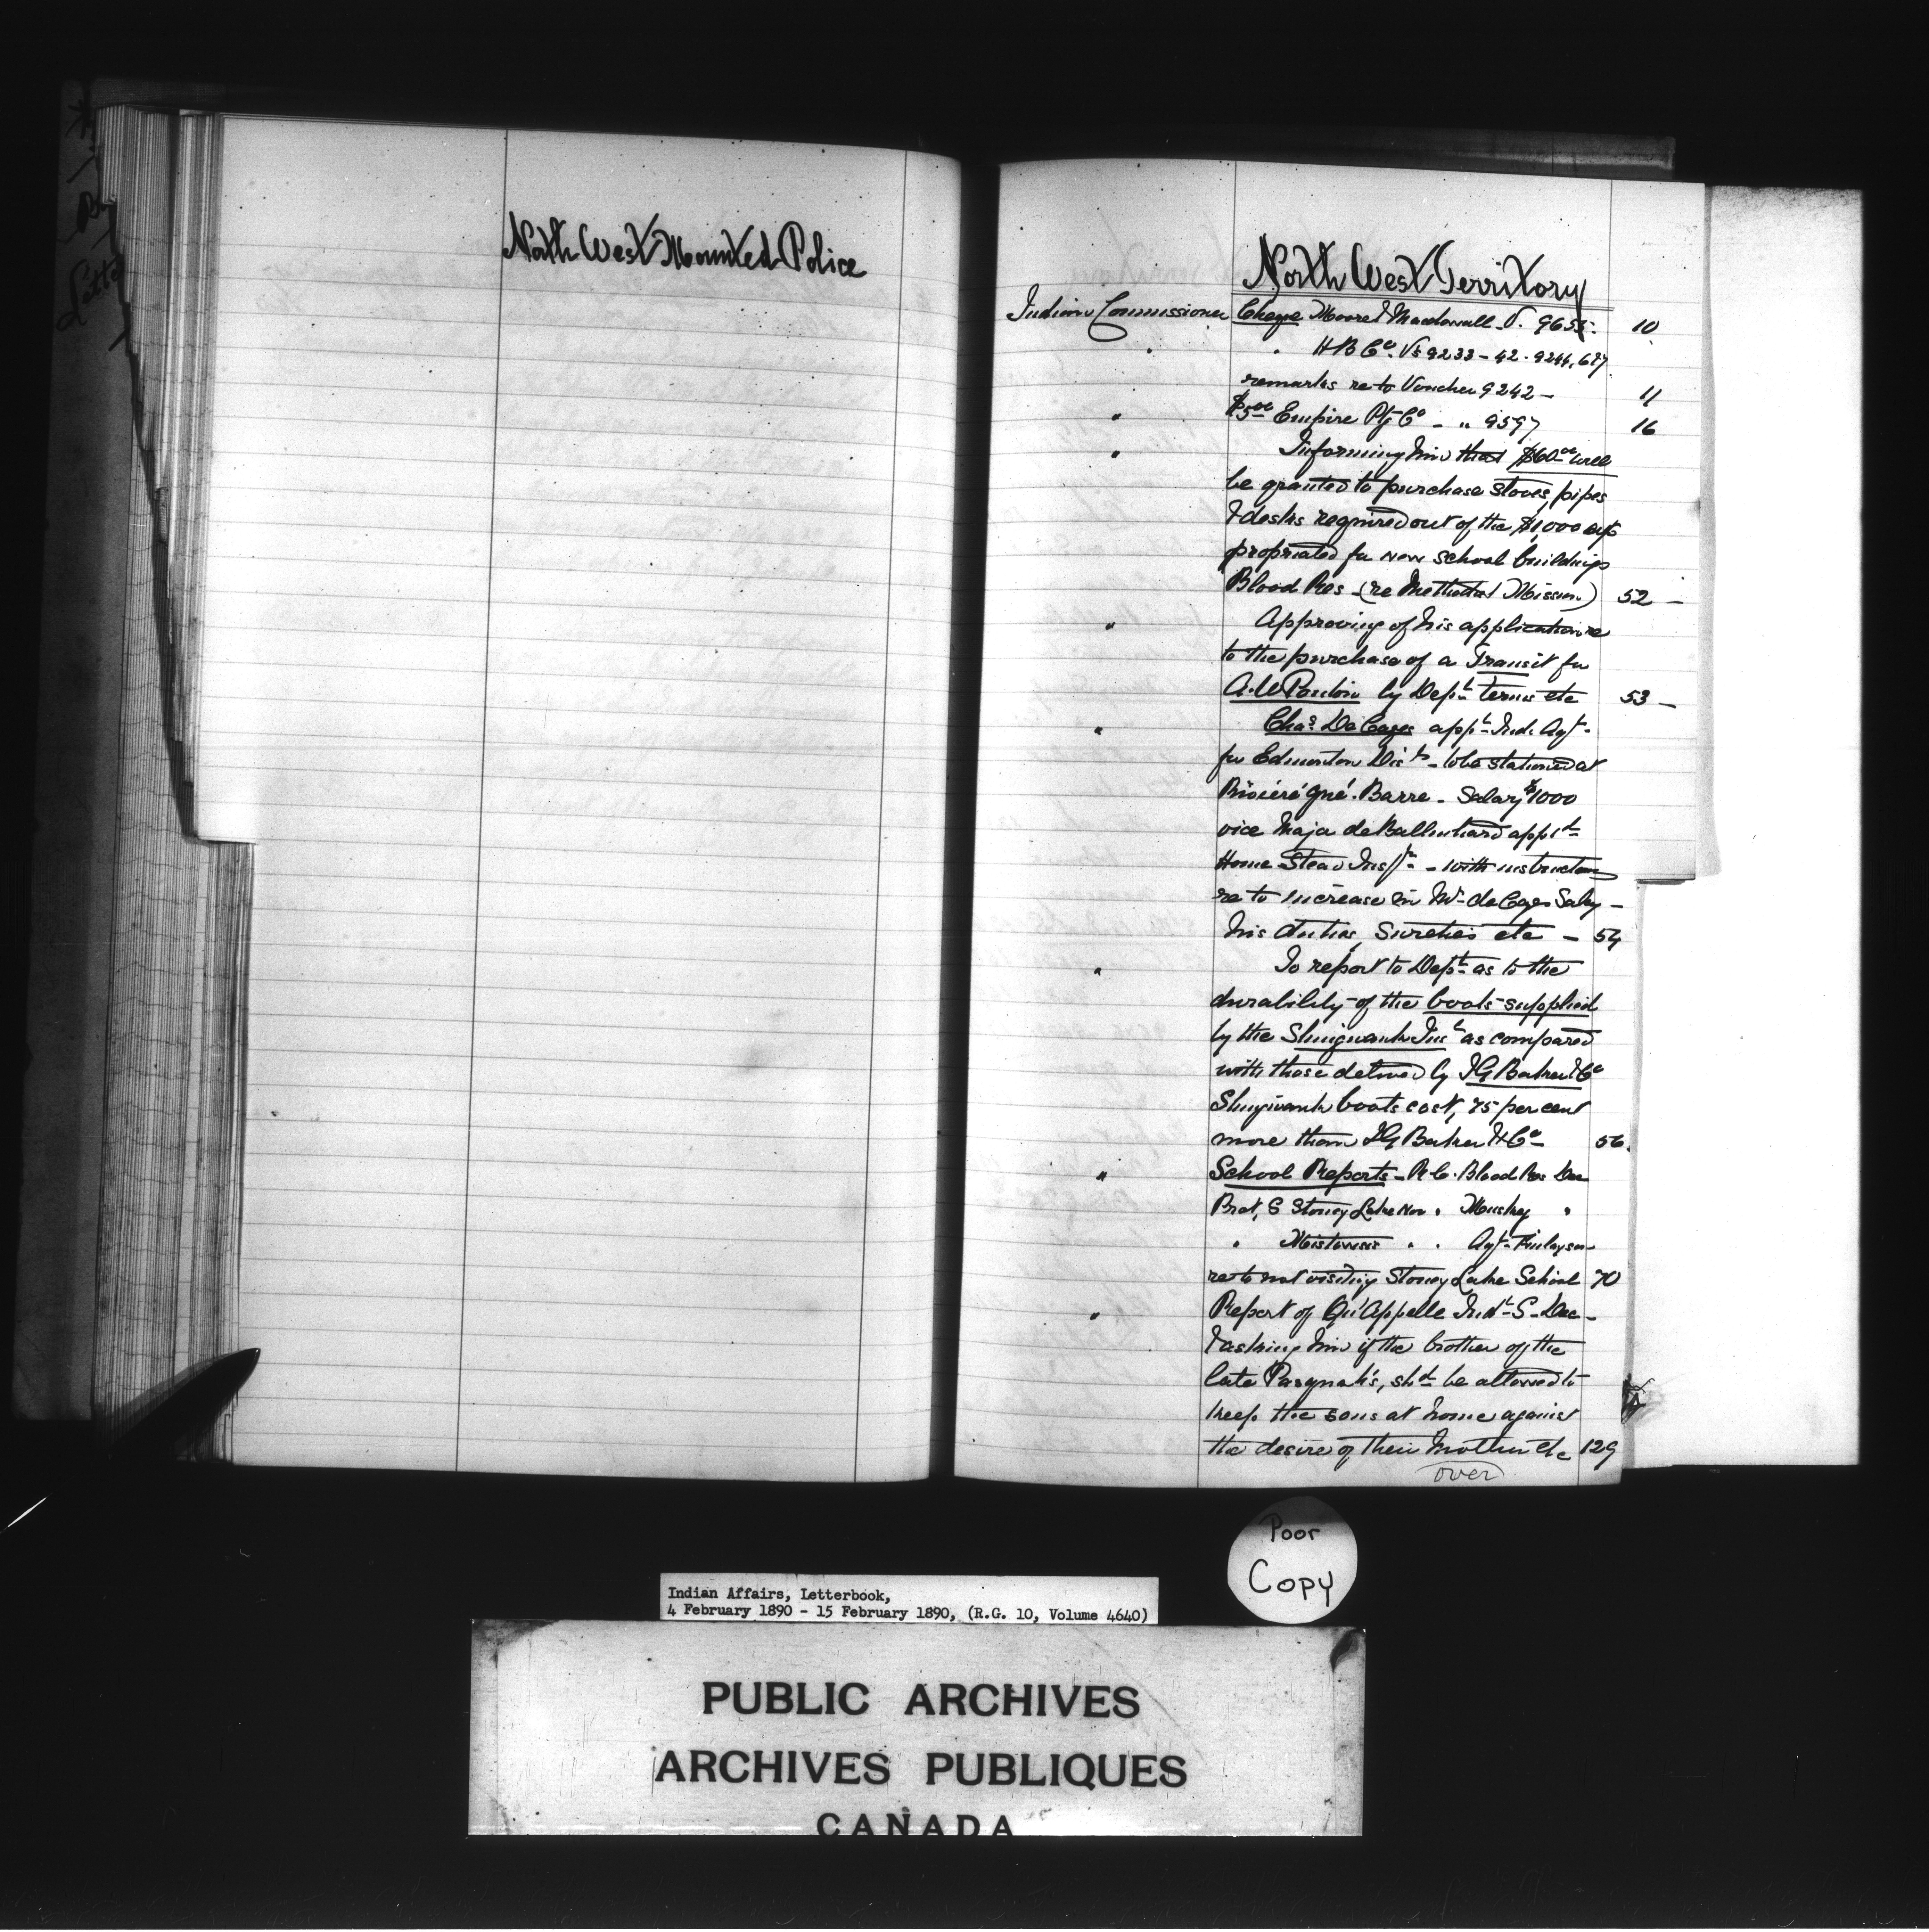 North West Mounted Police
North West Territory
Indian Commissioner Cheque Moore & Macdowall - V. 9655 - 10
" " H B Co. Vs 9233 - 42 - 9244, 6 & 7
remarks re to Voucher 9242 - 11
" $5.00 Empire Ptg Co - " 9597 16
" Informing him that $60.00 will
be granted to purchase stoves, pipes
& desks required out of the $1,000 ap
propriated for new school buildings
Blood Res - (re Methodist Mission) 52 -
" Approving of his application re
to the purchase of a Transit for
A.W Ponton by Dept. terms etc 53 -
" Chas De Cazes appt. Ind. Agt.
for Edmonton Dist - to be stationed at
Rivière qué Barre - Salary $1000
vice Major de Ballinhard apptd
Home Stead Inspr - with instructions
re to increase in Mr de Cazes Salry -
his duties, sureties etc - 54
" To report to Dept. as to the
durability of the boots supplied
by the Shingwauk Inst as compared
with those delived by I G Baker & Co
Shingwauk boots cost, 75 per cent
more than I G Baker & Co - 56.
" School Reports - R.C. Blood Res Dec
Prot, S Stoney Lake Nov " Muskeg "
" Mistowasis " " Agt. Finlayson
re to not visiting Stoney Lake School 70
" Report of Qu'Appelle Ind. S - Dec -
& asking him if the brother of the
late Pasquah's, shd. be allowed to
keep the sons at home against
the desire of their Mother etc 129
over
Poor
Copy
Indian Affairs, Letterbook,
4 February 1890 - 15 February 1890, (R.G. 10, Volume 4640)
PUBLIC ARCHIVES
ARCHIVES PUBLIQUES
CANADA